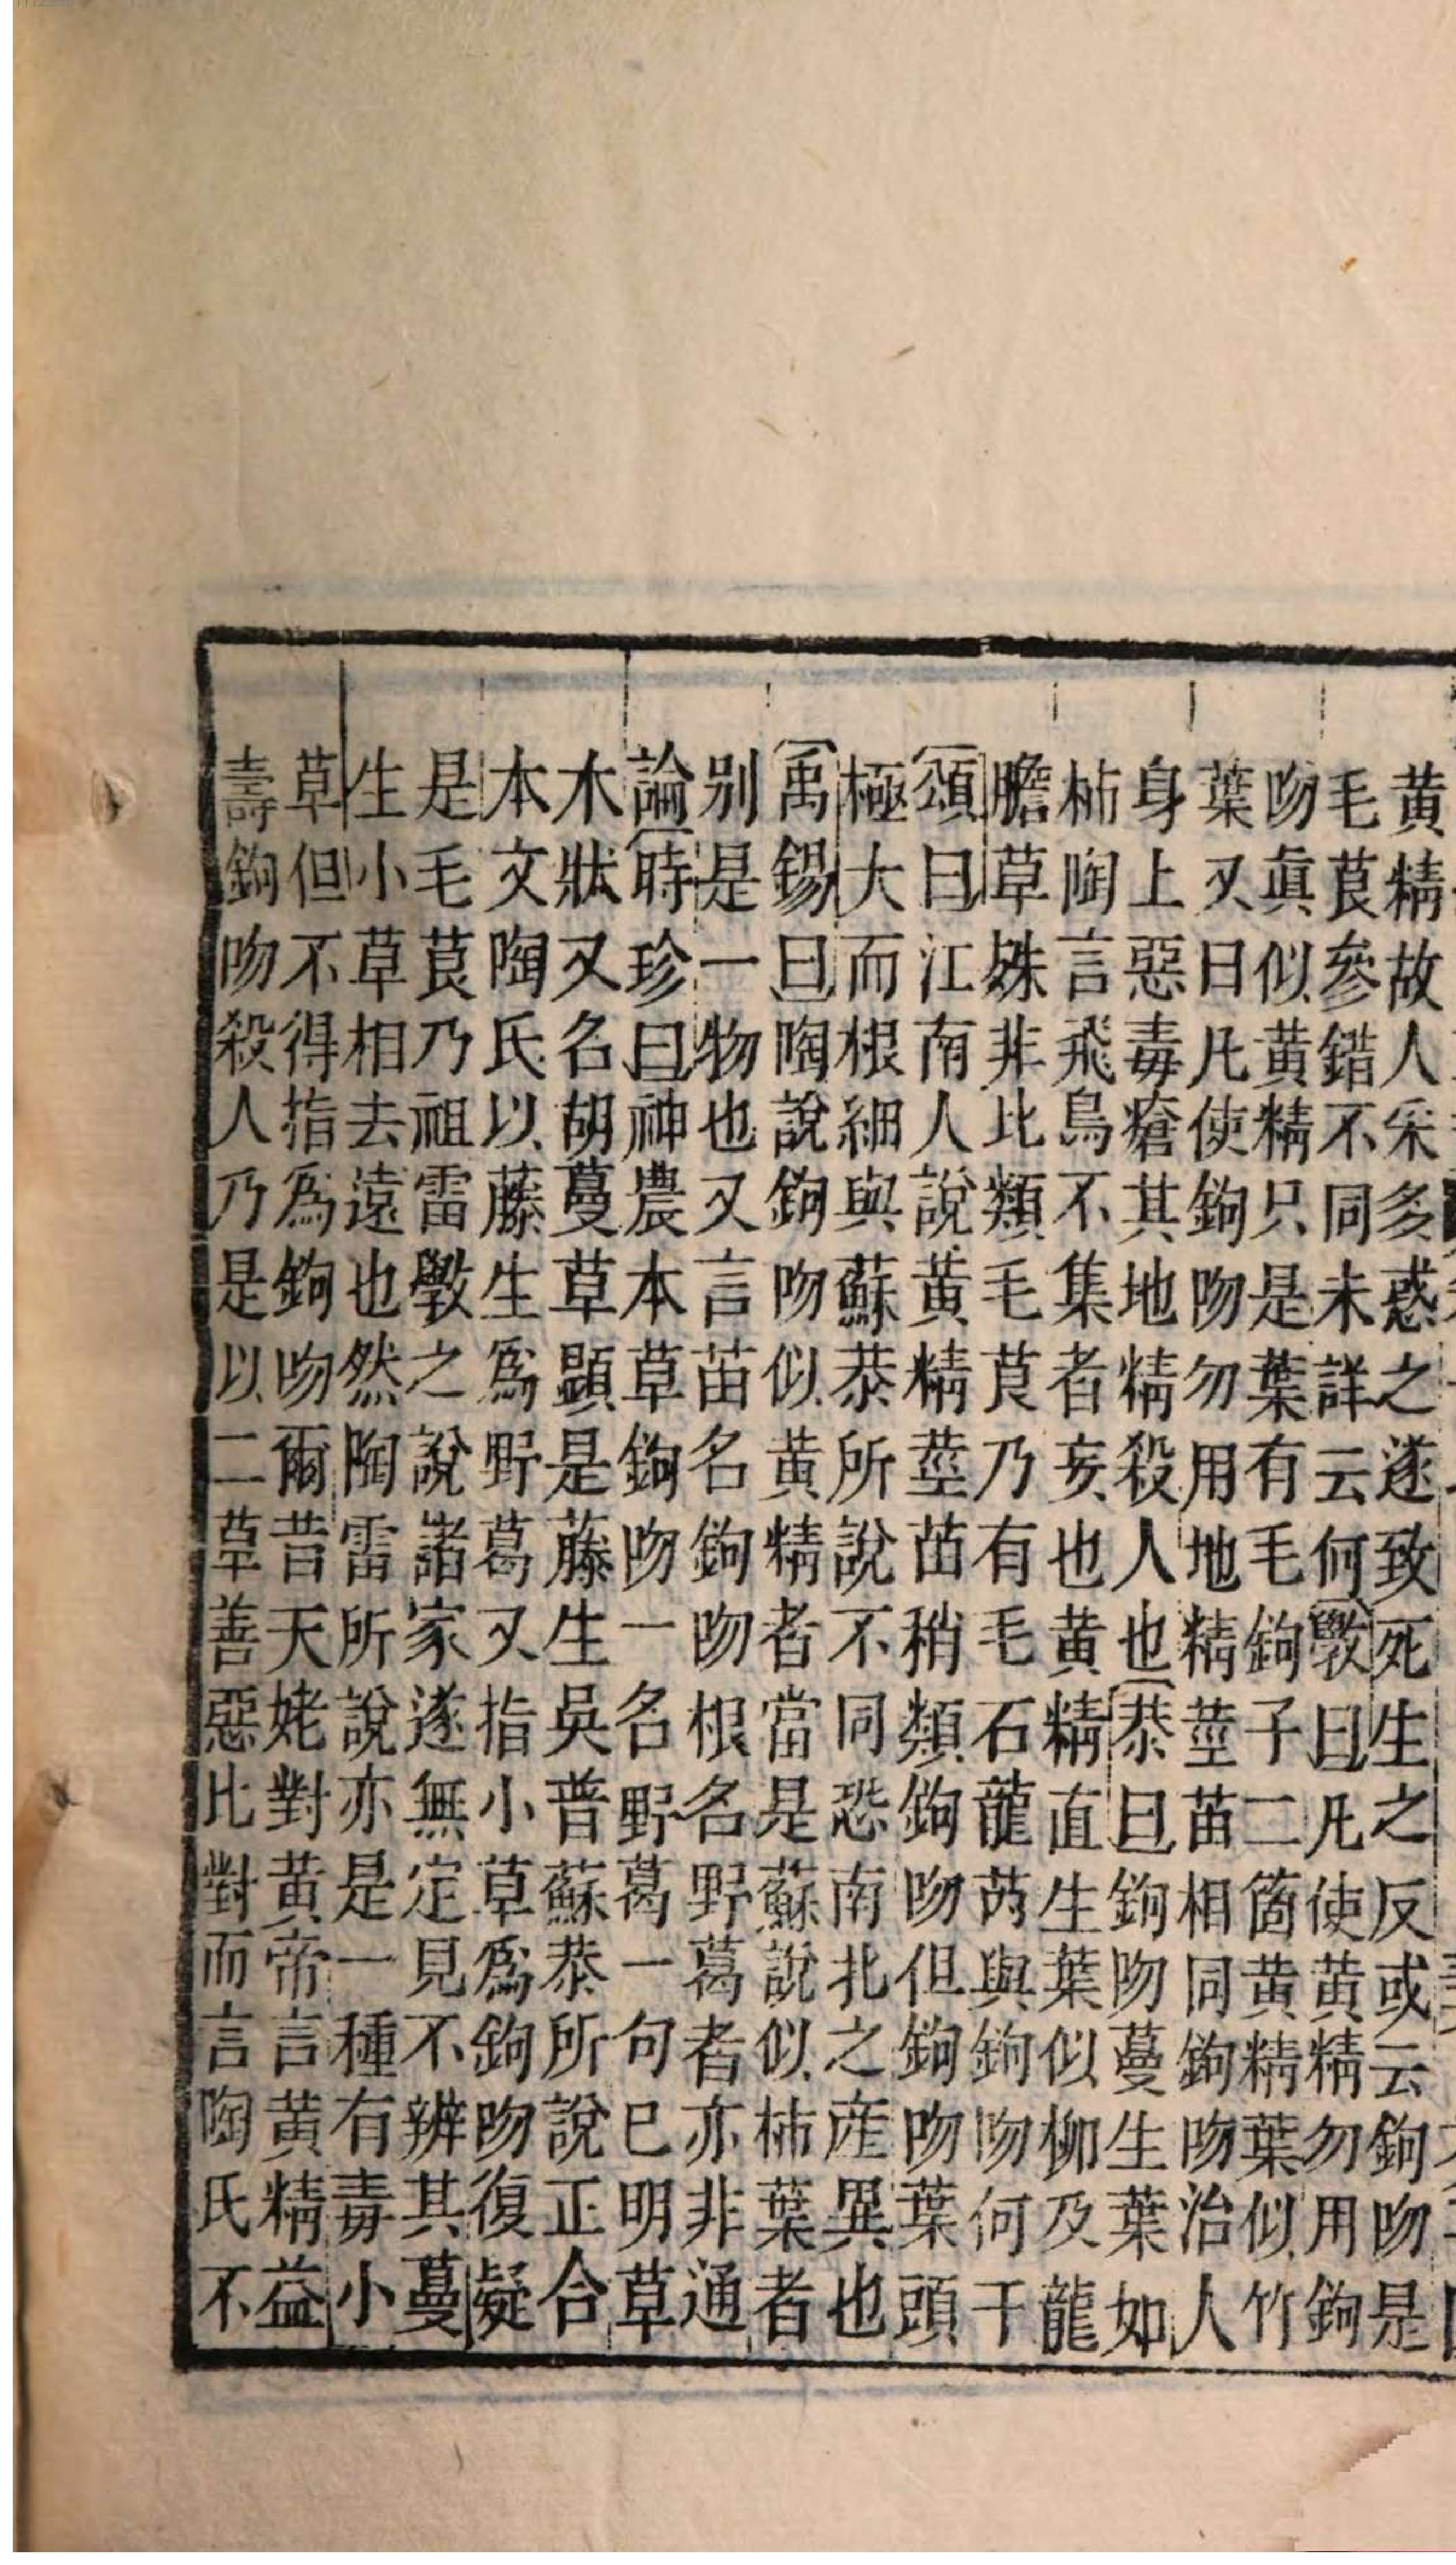 黄精故人采多惑之遂致死生之反或云鉤吻是
毛茛參錯不同未詳云何斆曰凡使黄精勿用鉤
吻真似黄精只是葉有毛鉤子二箇黄精葉似竹
葉又曰凡使鉤吻勿用地精莖苗相同鉤吻治人
身上惡毒瘡其地精殺人也恭曰鉤吻蔓生葉如
柿陶言飛鳥不集者妄也黄精直生葉似柳及龍
膽草殊非比類毛茛乃有毛石龍芮與鉤吻何干
頌曰江南人說黄精莖苗稍類鉤吻但鉤吻葉頭
極大而根細與蘇恭所說不同恐南北之産異也
禹錫曰陶說鉤吻似黄精者當是蘇說似柿葉者
别是一物也又言苗名鉤吻根名野葛者亦非通
論時珍曰神農本草鉤吻一名野葛一句已明草
木狀又名胡蔓草顯是藤生吳普蘇恭所說正合
本文陶氏以藤生爲野葛又指小草爲鉤吻復疑
是毛茛乃祖雷斆之說諸家遂無定見不辨其蔓
生小草相去遠也然陶雷所說亦是一種有毒小
草但不得指爲鉤吻爾昔天姥對黄帝言黄精益
壽鉤吻殺人乃是以二草善惡比對而言陶氏不